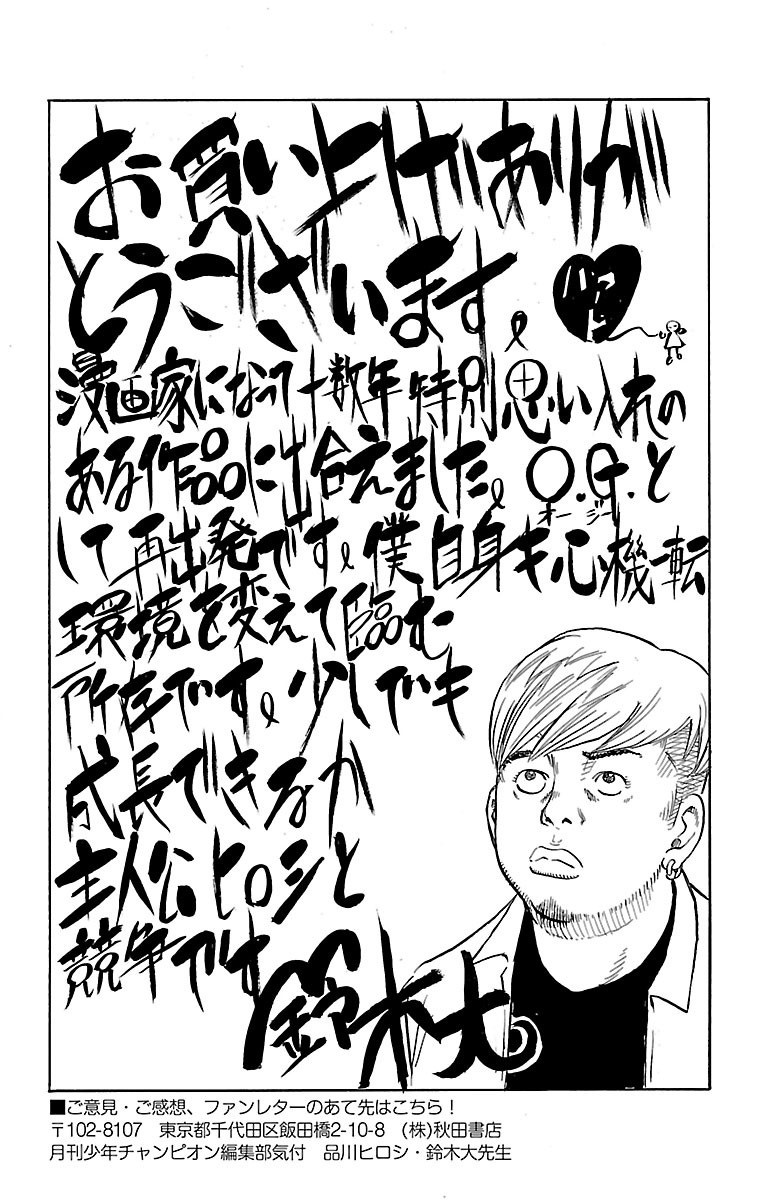 お買い上げありが
とうございます。
漫画家になって十数年特別思い入れの
ある作品に出会えました。O.G.と
オージー
して再出発です。僕自身も心機一転
環境を変えて臨む
所存です。少しでも
成長できるか
主人公ヒロシと
競争です
鈴木大
■ご意見・ご感想、ファンレターのあて先はこちら！
〒102-8107　東京都千代田区飯田橋2-10-8　(株)秋田書店
月刊少年チャンピオン編集部気付　品川ヒロシ・鈴木大先生